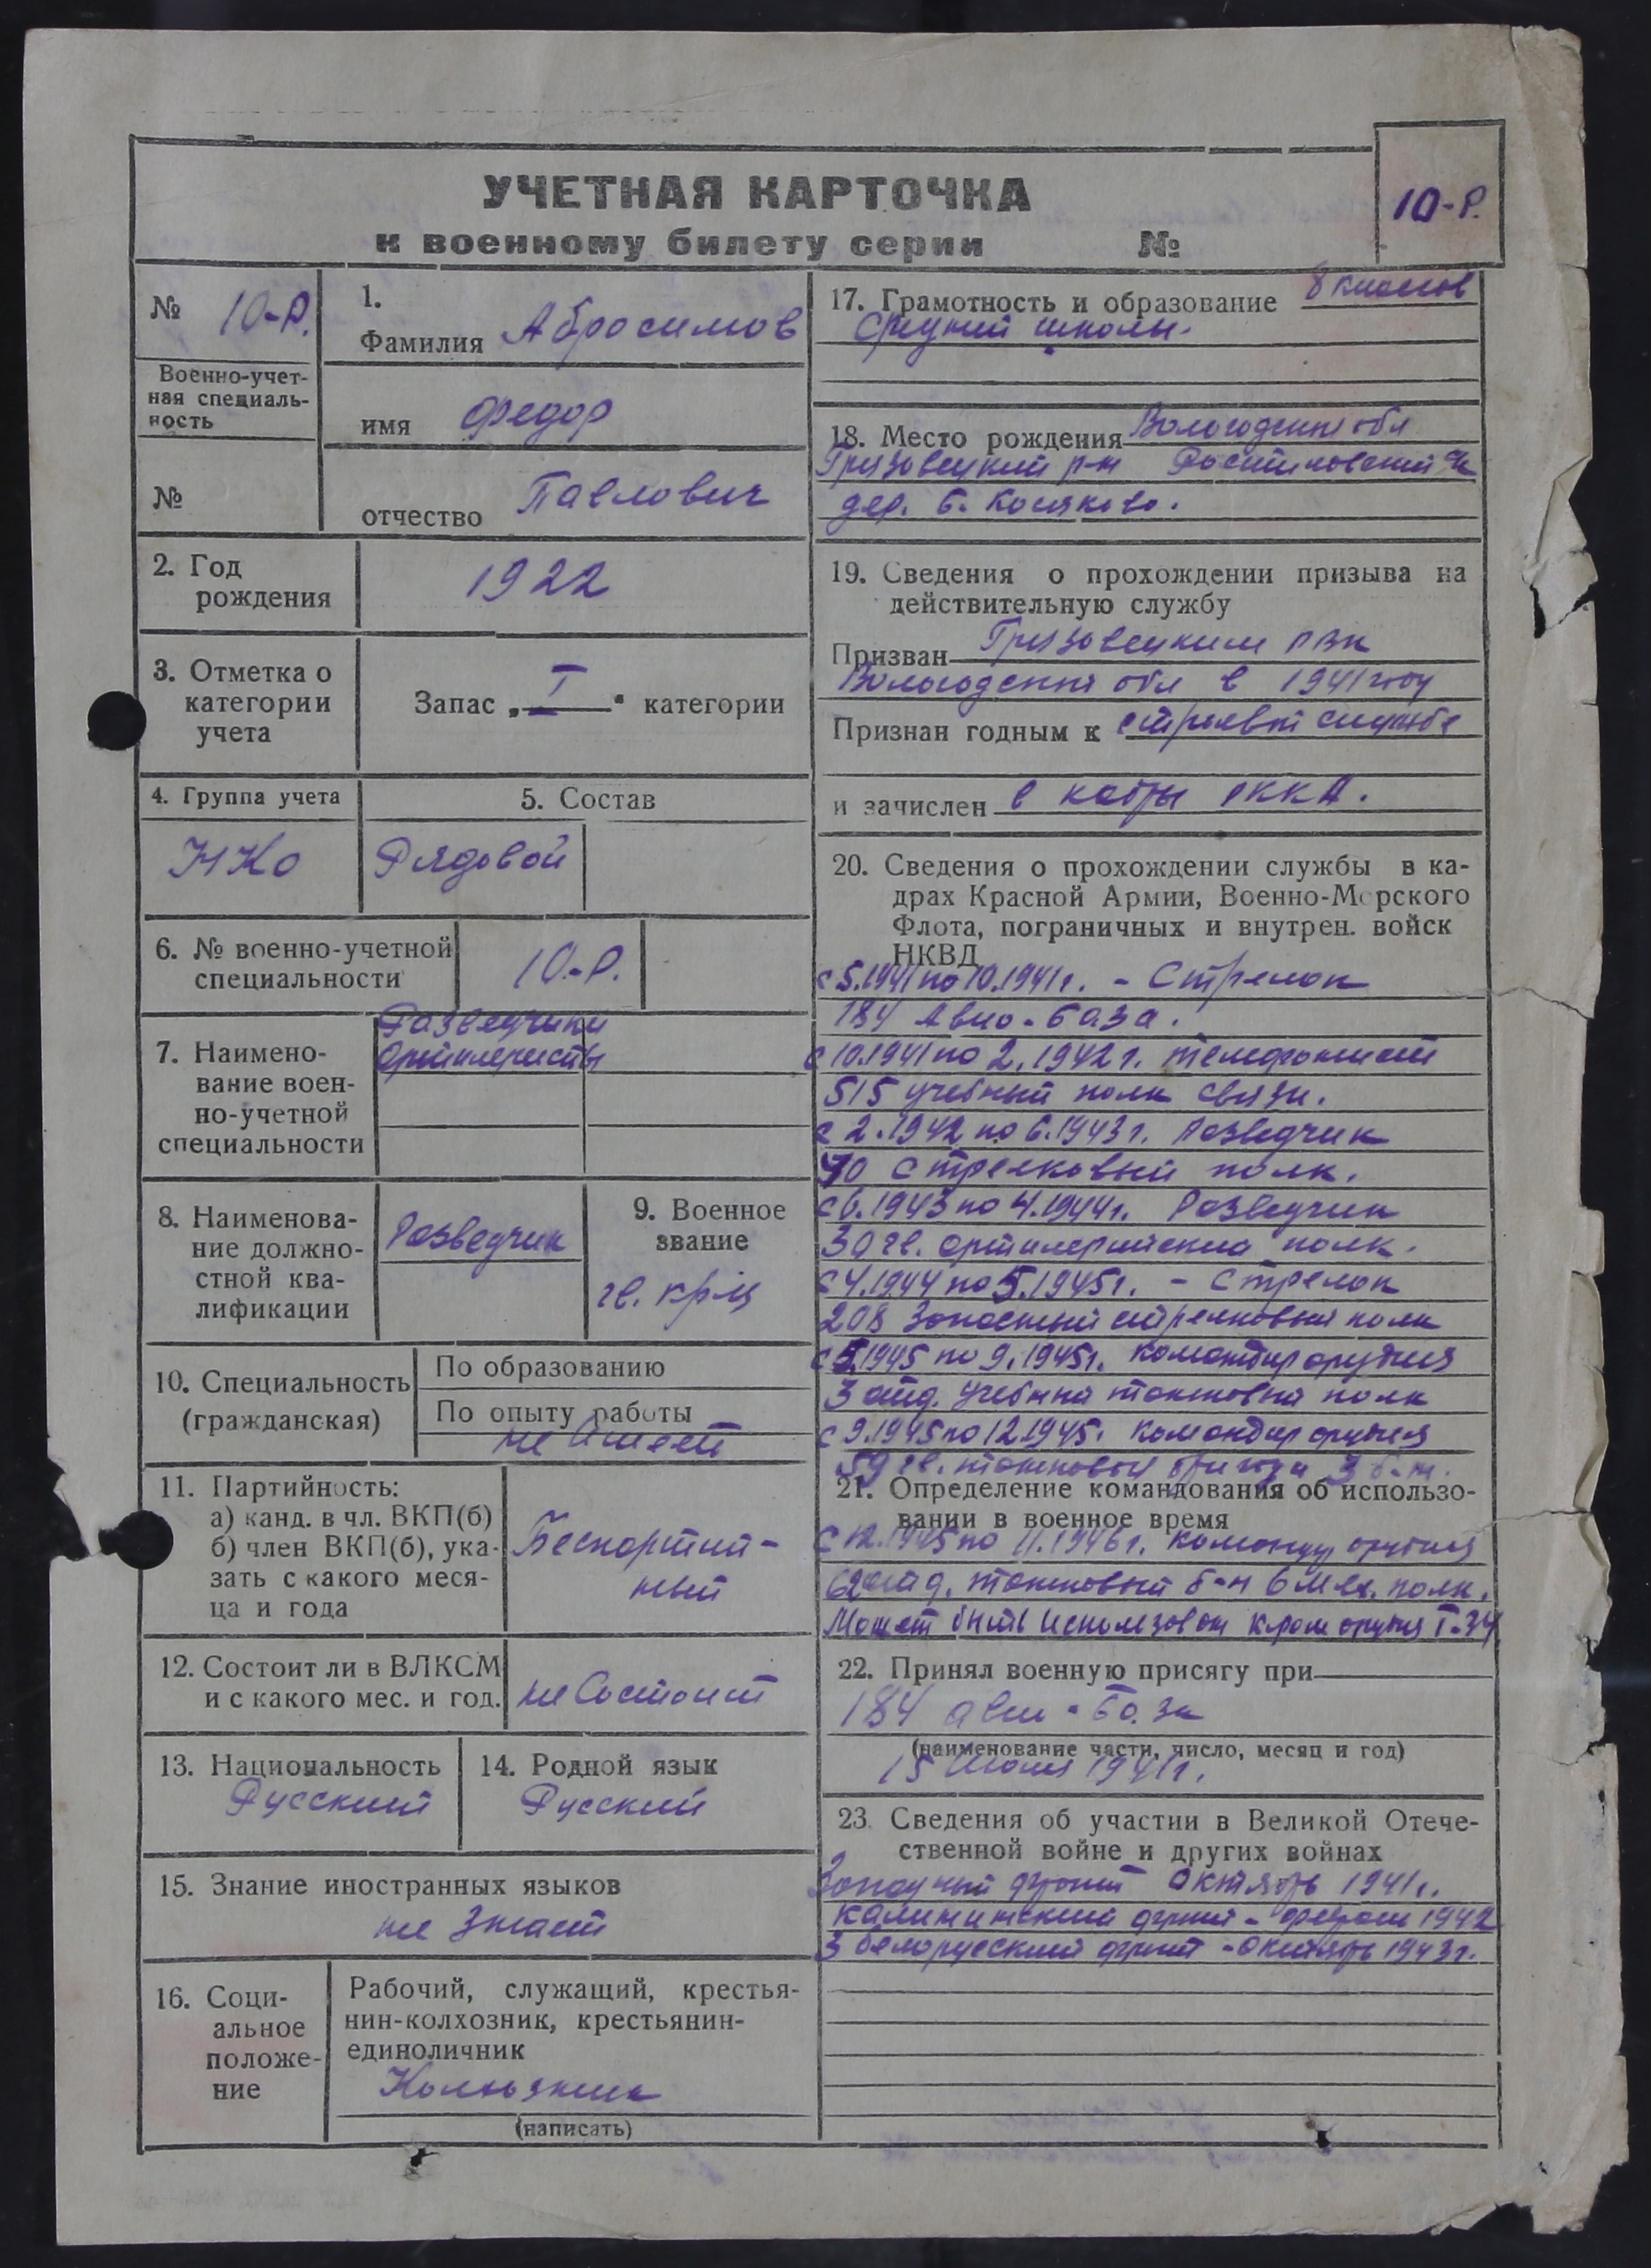 УЧЕТНАЯ КАРТОЧКА
к военному билету серии №
10-Р.
№ 10-Р.
Военно-учет-
ная специаль-
ность
№
1.
Фамилия Абросимов
имя Федор
отчество Павлович
2. Год
рождения
1922
3. Отметка о
категории
учета
Запас „I“ категории
4. Группа учета
НКО
5. Состав
Рядовой
6. № военно-учетной
специальности
10-Р.
7. Наимено-
вание воен-
но-учетной
специальности
Разведчики
Артилеристы
8. Наименова-
ние должно-
стной ква-
лификации
Разведчик
9. Военное
звание
гв. кр-ц
10. Специальность
(гражданская)
По образованию
По опыту работы
не имеет
11. Партийность:
а) канд. в чл. ВКП(б)
б) член ВКП(б), ука-
зать с какого меся-
ца и года
Беспартий-
ный
12. Состоит ли в ВЛКСМ
и с какого мес. и год.
не Состоит
13. Национальность
Русский
14. Родной язык
Русский
15. Знание иностранных языков
не Знает
16. Соци-
альное
положе-
ние
Рабочий, служащий, крестья-
нин-колхозник, крестьянин-
единоличник
(написать)
17. Грамотность и образование 8 классов
средний школы.
18. Место рождения Вологодская обл
Грязовецкий р-н
дер. Б. Косиково.
19. Сведения о прохождении призыва на
действительную службу
Призван Грязовецким РВК
Вологодская обл в 1941 году
Признан годным к строевой службе
и зачислен в кадры РККА.
20. Сведения о прохождении службы в ка-
драх Красной Армии, Военно-Морского
Флота, пограничных и внутрен. войск
НКВД
с 5.1941 по 10.1941 г. - Стрелок
184 Авио-база.
с 10.1941 по 2.1942 г. телефонист
515 учебный полк связи.
с 2.1942 по 6.1943 г. Разведчик
стрелковый полк.
с 6.1943 по 4.1944 г. Разведчик
30 гв. артилерийский полк.
с 4.1944 по 5.1945 г. - Стрелок
208 Запасный стрелковый полк
с 5.1945 по 9.1945 г. командир орудия
3 отд. учебный танковый полк
с 9.1945 по 12.1945. командир орудия
59 гв. танковый бригада 3 б-н.
21. Определение командования об использо-
вании в военное время
с 12.1945 по 11.1946 г. командир орудия
отд. танковый б-н полк.
Может быть использован к-ром орудия Т-34
22. Принял военную присягу при
184 авио-база
(наименование части, число, месяц и год)
15 1941 г.
23. Сведения об участии в Великой Отече-
ственной войне и других войнах
Западный фронт Октябрь 1941 г.
Калининский фронт - феврал 1942
3 белорусский фронт - октябрь 1943 г.